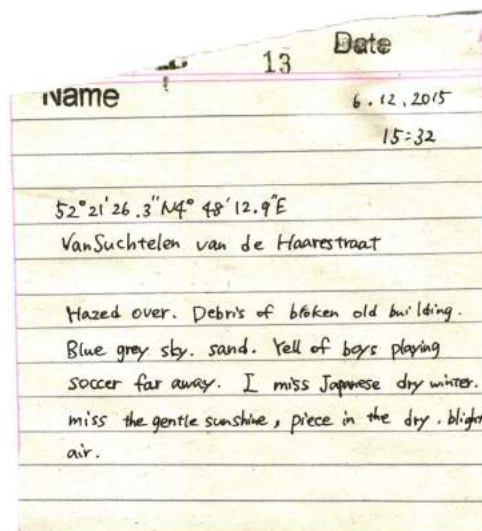 13 Date
Name
6.12.2015
15:32
52°21'26.3"N4° 48'12.9"E
VanSuchtelen van de Haarestraat
Hazed over. Debris of broken old building.
Blue grey sky. sand. Yell of boys playing
soccer far away. I miss Japanese dry winter.
miss the gentle sunshine, piece in the dry. blight
air.